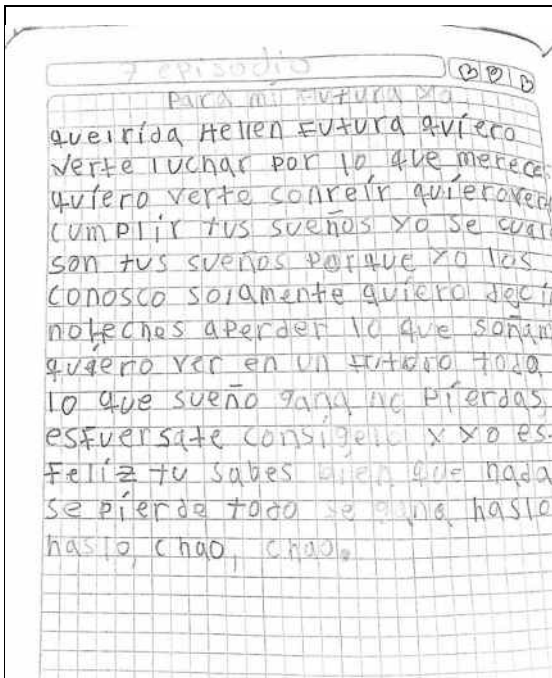 7 episodio
Para mi Futura Yo
queirida Hellen Futura quiero
verte luchar por lo que mereces
quiero verte conreir quiero ver
cumplir tus sueños yo se cual
son tus sueños porque yo los
conosco solamente quiero decir
noteches aperder lo que soñam
quiero ver en un futuro todo
lo que sueño gana no pierdas,
esfuersate consigelo y yo es
feliz tu sabes bien que nada
se pierde todo se gana haslo
haslo, chao, chao.